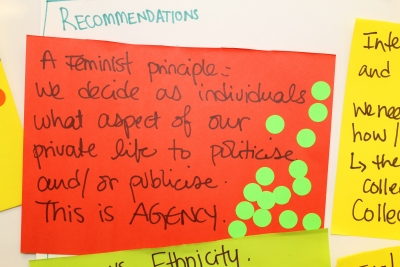 RECOMMENDATIONS
A Feminist principle:
we decide as individuals
what aspect of our
private life to politicise
and/or publicise.
This is AGENCY.
and
we need
how /
Ethnicity.